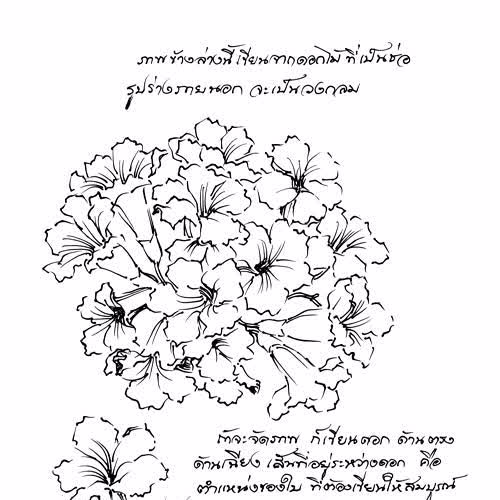 ภาพข้างล่างนี้ เขียนจากดอกไม้ ที่เป็นช่อ
รูปร่างภายนอก จะเป็นวงกลม
ถ้าจะจัดภาพ ก็เขียนดอก ด้านตรง
ด้านเฉียง เส้นที่อยู่ระหว่างดอก คือ
ตำแหน่งของใบ ที่ต้องเขียนให้สมบูรณ์